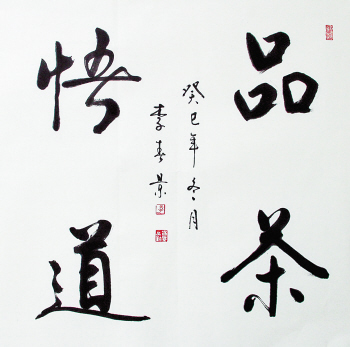 品茶
悟道
癸巳年冬月
李春景